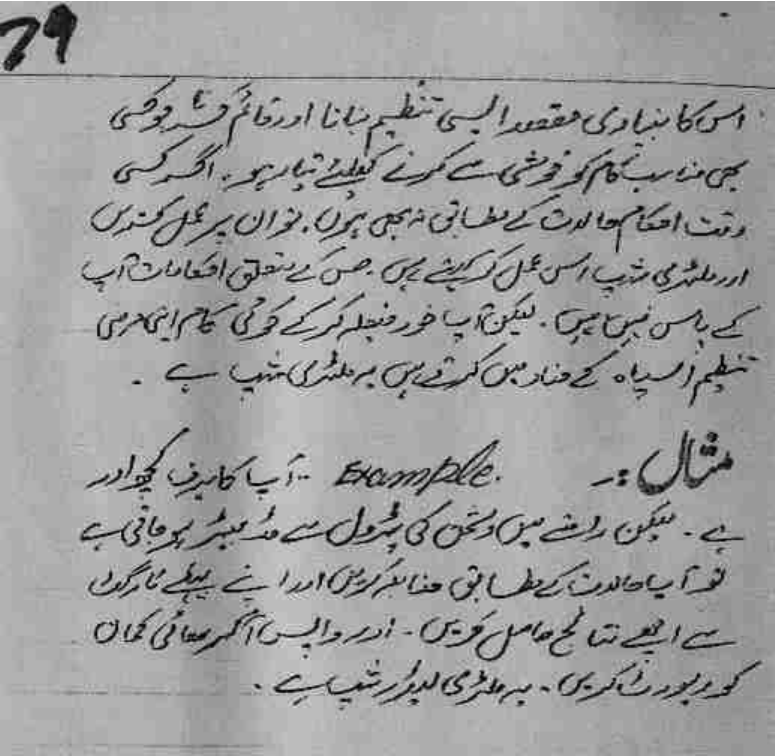 79
اس کا بنیادی مقصد ایسی تنظیم بنانا اور قائم کرنا جو کسی
بھی مناسب کام کو خوشی سے کرنے کیلئے تیار ہو۔ اگر کسی
وقت احکام حالات کے مطابق نہ بھی ہوں۔ تو ان پر عمل کریں
اور ملٹری شپ اس عمل کو کہتے ہیں۔ جس کے متعلق احکامات آپ
کے پاس نہیں ہیں۔ لیکن آپ خود فیصلہ کر کے کوئی کام اپنی مرضی
تنظیم سپاہ کے مفاد میں کرتے ہیں یہ ملٹری شپ ہے۔
مثال :۔ Example. آپ کا ہدف کچھ اور
ہے۔ لیکن راستے میں دشمن کی پٹرول سے مڈ بھیڑ ہو جاتی ہے
تو آپ حالات کے مطابق مقابلہ کریں اور اپنے پہلے ٹارگٹ
سے اچھے نتائج حاصل کریں۔ اور واپس آکر ہائی کمان
کو رپورٹ کریں۔ یہ ملٹری لیڈر شپ ہے۔